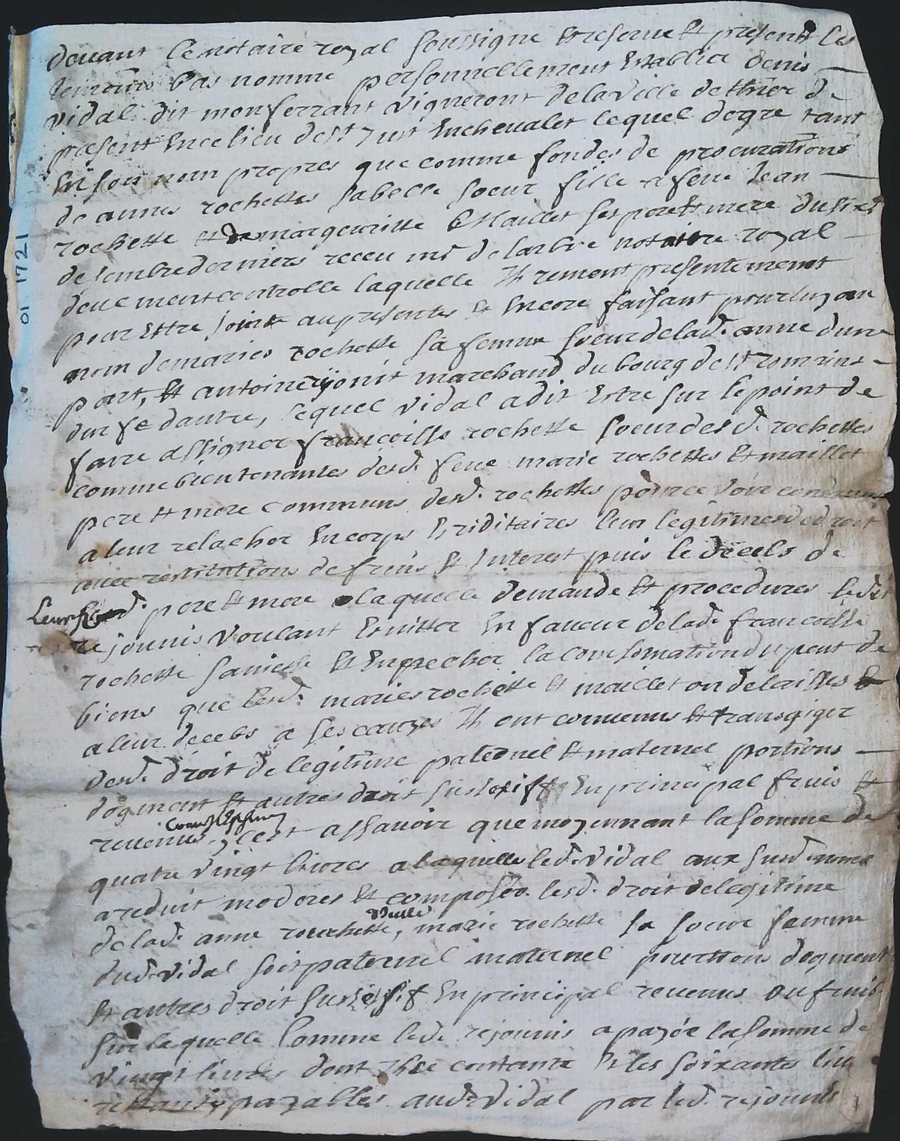 devant le notaire royal soussigne & reserve & presents les
temoins bas nomme personnellement establie denis
vidal dit monferrant vigneront de la ville de thier de
present en ce lieu de st just en chevalet lequel de gre tant
en son nom propres que comme fondes de procurations
de annes rochettes sa belle soeur fille a feue Jean
rochette & de margueritte maillet ses pere & mere du
derniers receu me de larbre nottaire royal
deuement controlle laquelle Il remont presentement
pour estre jointe au presentes & encore faisant pour luy au
nom de maries rochette sa femme soeur de lad. anne dune
part, & antoine rejonit marchand du bourg de st romains
durfe dautre, lequel vidal a dit estre sur le point de
faire assigner francoisse rochette soeur desd. rochettes
comme bientenantes desd. feue marie rochettes & maillet
pere & mere communs desd. rochettes pour se voir
a leur relacher en corps hereditaires leur legitimes de droit
avec restitutions de fruis & Interest puis le decels de
leurs d. pere & mere a laquelle demande & procedures led.
rejounis voulant eviter en faveur de lad. francoisse
rochette sa niesse & enpecher la consomation du peut de
biens que lesd. maries rochette & maillet on delaisses
a leur decebs a ses causes Il ont convenus & transigiger
desd. droit de legitime paternel & maternel portions
dogment & autres droit sucsesif en principal fruis &
revenus, cest assavoir que moyennant la somme de
quatre vingt livres a laquelle led. vidal aux susd. noms
a reduit moderes & composes lesd. droit de legitime
de lad. anne rouchette, marie rochette sa soeur femme
dud. vidal soit paternel maternel pourtions dogment
& autres droit sucsesif en principal revenus ou fruis
sur laquelle somme led. rejounis a payée la somme de
vingt livres dont contante & les soixantes livres
restantes payables aud. vidal par led. rejounis
01 1721